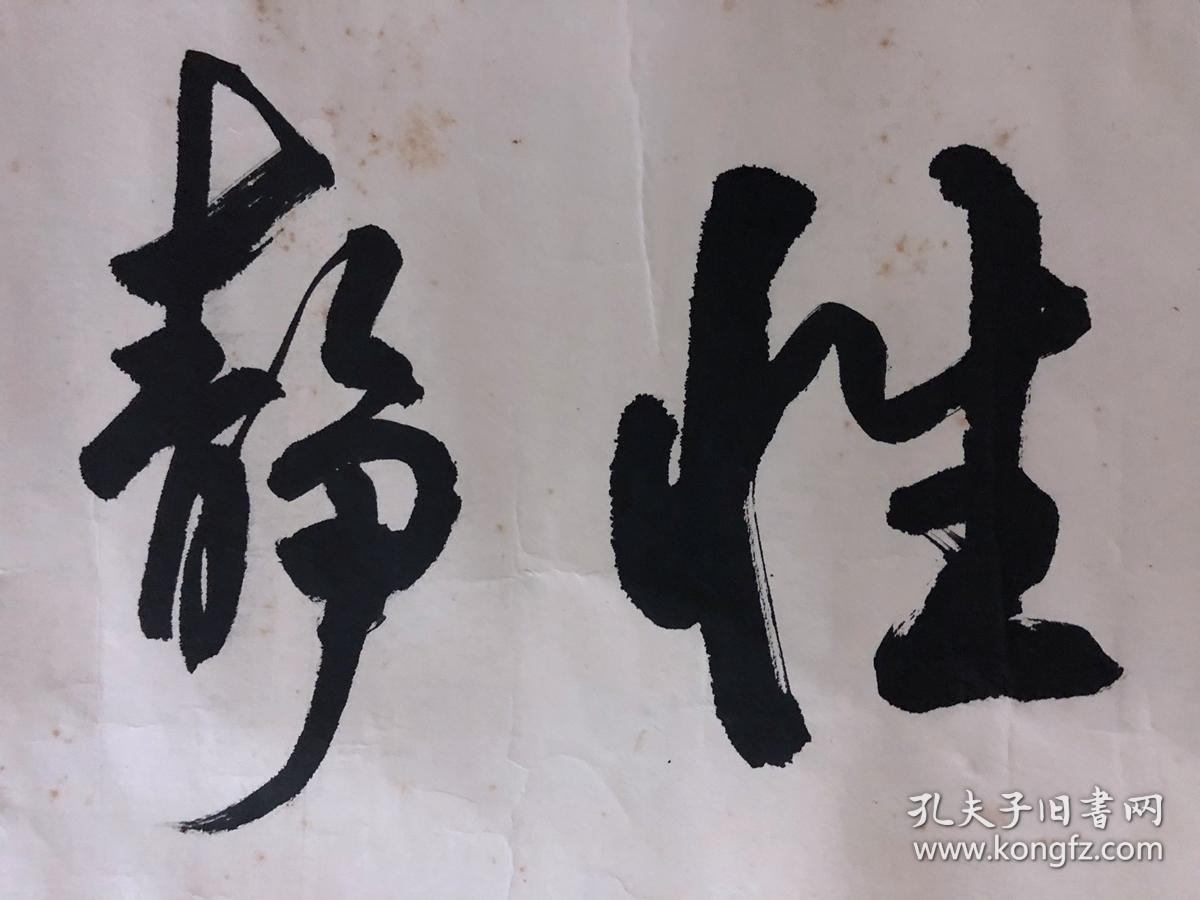 性靜
孔夫子旧書网
www.kongfz.com